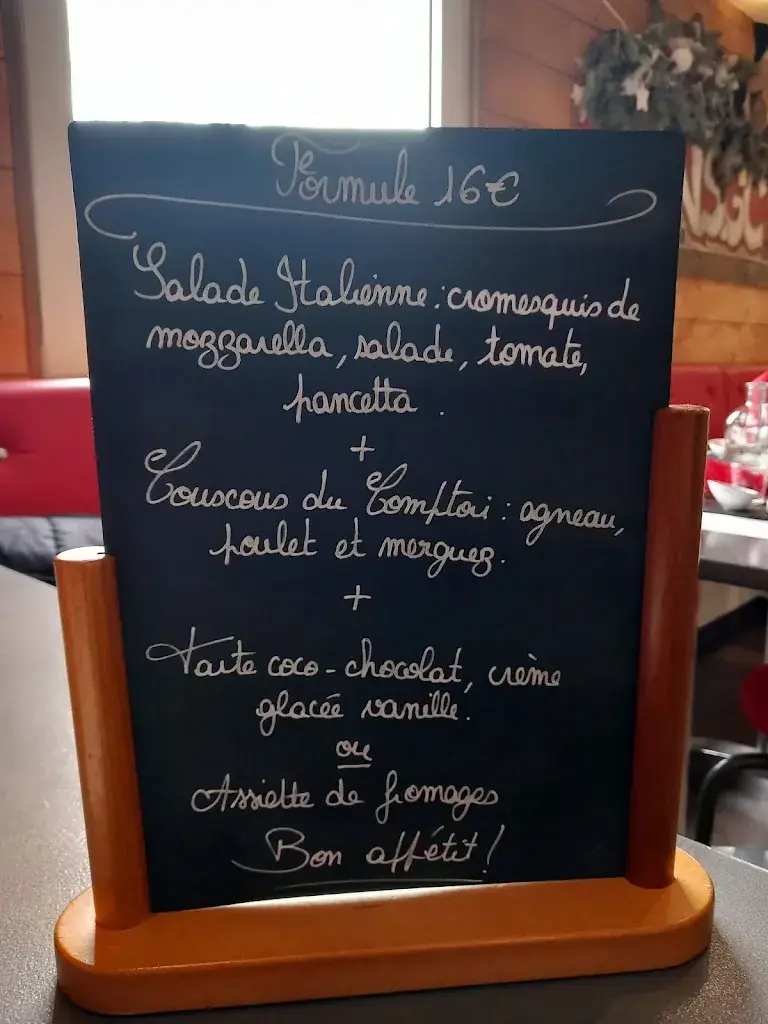 Formule 16€
Salade Italienne : cromesquis de
mozzarella, salade, tomate,
pancetta .
+
Couscous du Comptoir : agneau,
poulet et merguez.
+
Tarte coco-chocolat, crème
glacée vanille.
ou
Assiette de fromages
Bon appétit !